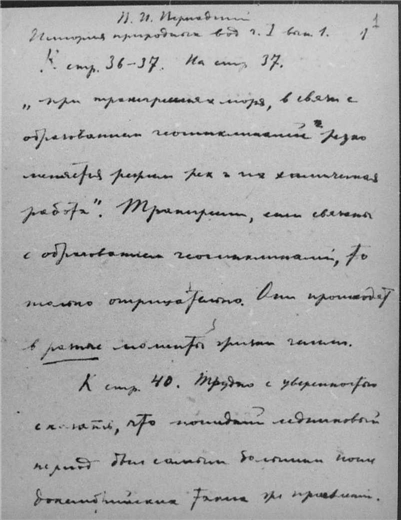 1
История природных вод ч. I вып. 1.
К стр. 36-37. На стр. 37.
„при трансгрессиях моря, в связи с
образованием геосинклиналей резко
меняется режим рек и их химическая
работа". Трансгрессии, если связаны
с образованием геосинклиналей, то
только отрицательно. Они происходят
в разные моменты жизни
К стр. 40. Трудно с уверенностью
сказать, что последний ледниковый
период был самым большим
докембрийские